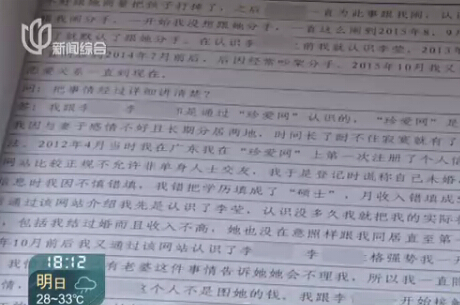 一直为此事跟我闹，认
我闹分手，一开始我没想跟她分手，一直这么闹到2015年8、9
就默认了跟她分手。在认识李 前我就认识李莹，2013年
2014年2月前后，后因经常吵架分手。2015年10月我又
恋爱关系一直到现在。
问：把事情经过详细讲清楚？
我跟李 李 是通过“珍爱网”认识的，“珍爱网”是
我因与妻子感情不好且长期分居两地，时间长了耐不住寂寞就有了
2012年4月当时我在广东我在“珍爱网”上第一次注册了个人信
网站比较正规不允许非单身人士交友，我于是登记时谎称自己未婚，
信息时我因不慎错填，我错把学历填成了“硕士”，月收入错填成
通过该网站介绍我先是认识了李莹，认识没多久我就把我的实际
，包括我结过婚而且收入不高，她也没在意照样跟我同居直至第一
年10月前后我又通过该网站认识了李 格强势我一开
有老婆这件事情告诉她她会不理我，所以我一直
个人不是图她的钱。我跟李 开始
新闻综合
18:12
明日
28~33℃